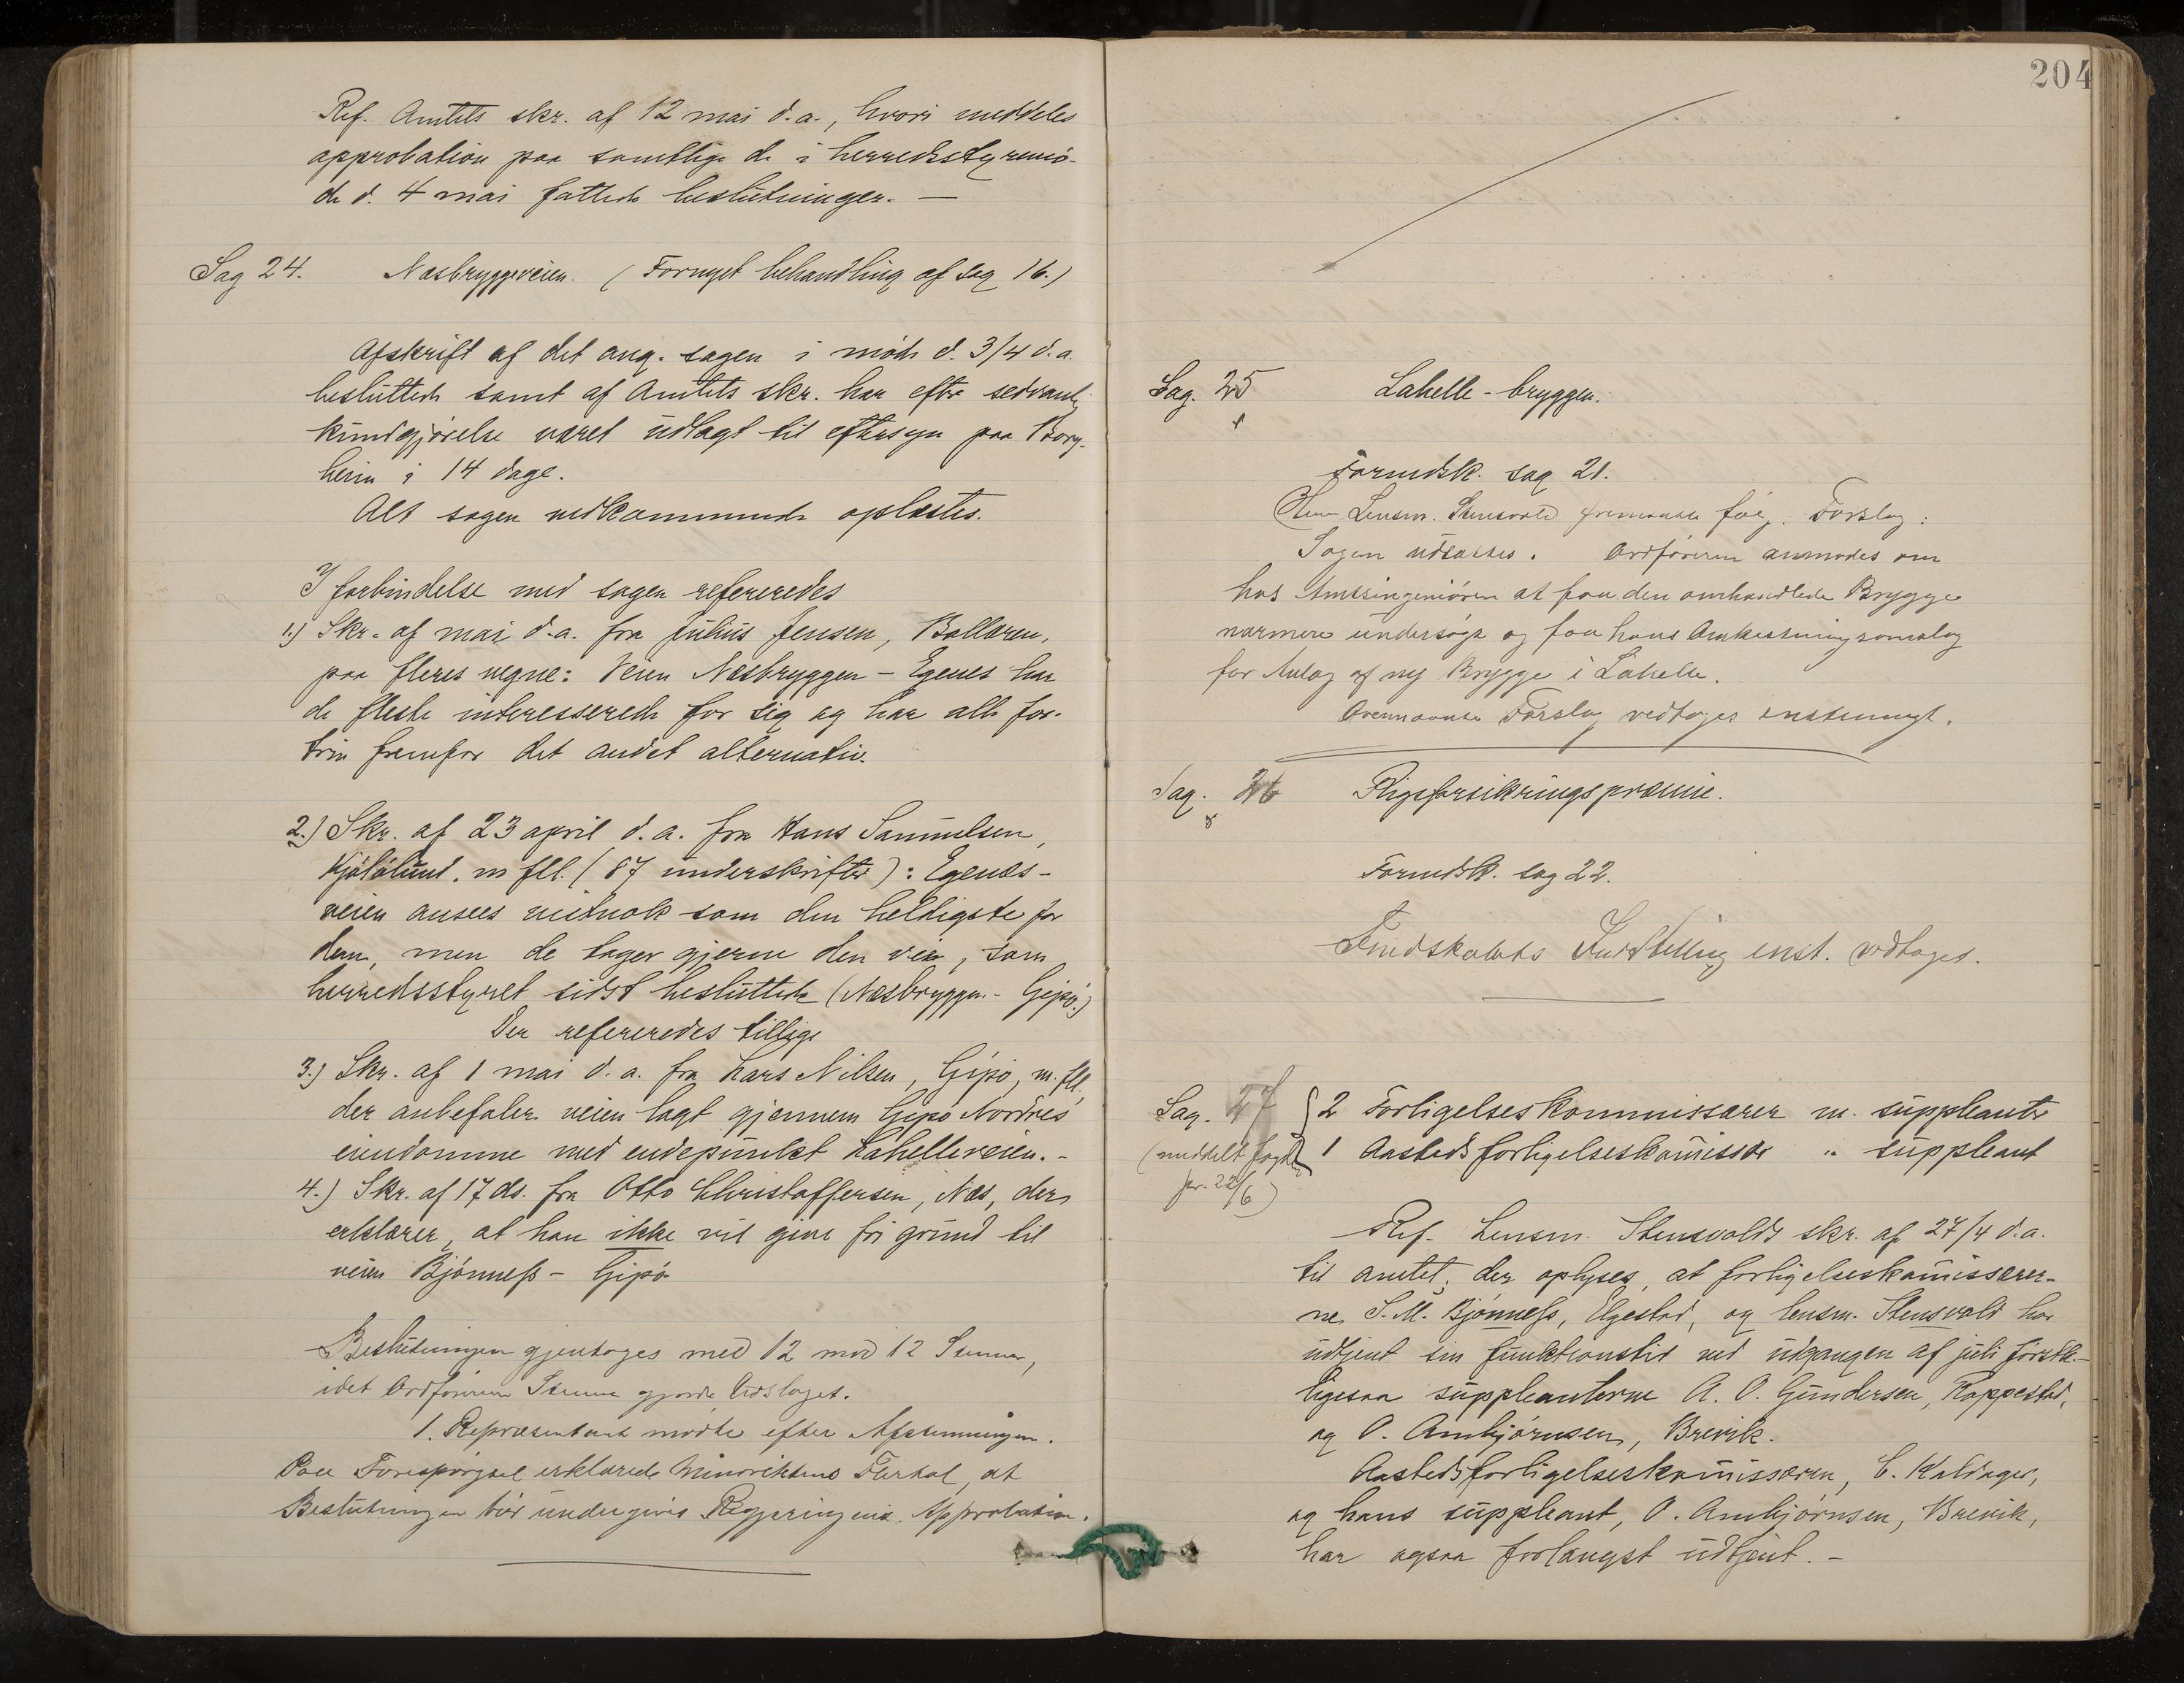 Ref. Amtets skr. af 12 mai d.a., hvori meddeles
approbation paa samtlige de i herredsstyremø-
de d. 4 mai fattede beslutninger. —
Sag 24. Næsbryggeveien. (Fornyet behandling af sag 16.)
Afskrift af det ang. sagen i møde d. 3/4 d.a.
besluttede samt af Amtets skr. har efter sedvanlig
kundgjørelse været udlagt til eftersyn paa Borg-
heim i 14 dage.
Alt sagen vedkommende oplæstes.
I forbindelse med sagen refereredes
1.) Skr. af mai d.a. fra Julius Jensen, Bollæren,
paa fleres vegne: Veien Næsbryggen – Egenes har
de fleste interesserede for sig og har alle for-
trin fremfor det andet alternativ.
2.) Skr. af 23 april d.a. fra Hans Samuelsen,
Kjølølund. m fll. (87 underskrifter): Egenæs-
veien ansees vistnok som den heldigste for
dem, men de tager gjerne den vei, som
herredsstyret sidst besluttede (Næsbryggen – Gipø.)
Der refereredes tillige
3.) Skr. af 1 mai d.a. fra Lars Nilsen, Gipø, m. fll.
der anbefaler veien lagt gjennem Gipø Nordres
eiendomme med endepunkt Lahelleveien. –
4.) Skr. af 17 ds. fra Otto Christoffersen, Næs, der
erklærer, at han ikke vil give fri grund til
veien Bjønness – Gipø
Beslutningen gjentoges med 12 mod 12 Stemmer,
idet Ordførerens Stemme gjorde Udslaget.
1. Repræsentant mødte efter Afstemningen.
Paa Forespørgsel erklærede Minoritetens Flertal, at
Beslutningen bør undergives Regjeringens Approbation.
204
Sag. 25 Lahelle-bryggen.
Formdsk. sag 21.
Herr Lensm. Stensvold fremsatte følg. Forslag:
Sagen udsættes. Ordføreren anmodes om
hos Amtsingeniøren at faa den omhandlede Brygge
nærmere undersøgt og faa hans Omkostningsoverslag
for Anlæg af ny Brygge i Lahelle.
Ovennævnte Forslag vedtoges enstemmigt.
Sag. 26 Fligsforsikringspræmie.
Formdsk. sag 22.
Fmdskabets Indstilling enst. vedtoges.
Sag. 27 2 Forligelseskommissærer m. suppleanter
(meddelt fogden 1 Aastedsforligelseskomissær " suppleant
pr. 22/6)
Ref. Lensm. Stensvolds skr. af 27/4 d.a.
til amtet; der oplyses, at forligelseskomissærer-
ne, S. M. Bjønness, Elgestad, og lensm. Stensvold har
udtjent sin funktionstid ved udgangen af juli førstk.-
ligesaa suppleanterne A. O. Gundersen, Roppestad,
og O. Ambjørnsen, Brevik.
Aastedsforligelseskomissæren, C. Kaldager,
og hans suppleant, O. Ambjørnsen, Brevik,
har ogsaa forlængst udtjent. –